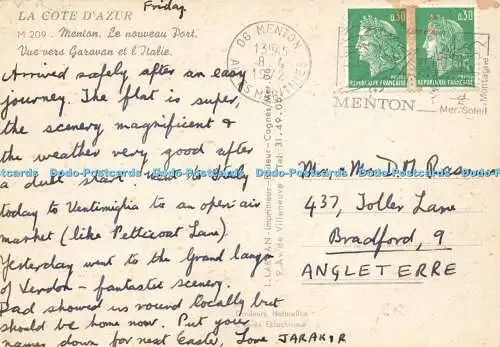 Friday
LA COTE D'AZUR
M 209. Menton. Le nouveau Port.
Vue vers Garavan et l'Italie.
Arrived safely after an easy
journey. The flat is super,
the scenery magnificent &
the weather very good after
a dull start. Went to Italy
today to Ventimiglia to an open-air
market (like Petticoat Lane).
Yesterday went to the Grand
of Verdon - fantastic scenery.
Dad showed us round locally but
should be home now. Put your
names down for next Easter, Love
06 MENTON
8 - 4
ALPES MARITIMES
0.30
REPUBLIQUE FRANÇAISE
0.30
REPUBLIQUE FRANÇAISE
MENTON
Mer Soleil
Montagne
Mr & Mrs D.M.
437, Toller Lane
Bradford, 9
ANGLETERRE
Couleurs Naturelles
Ektachrome
Dodo-Postcards Dodo-Postcards Dodo-Postcards Dodo-Postcards